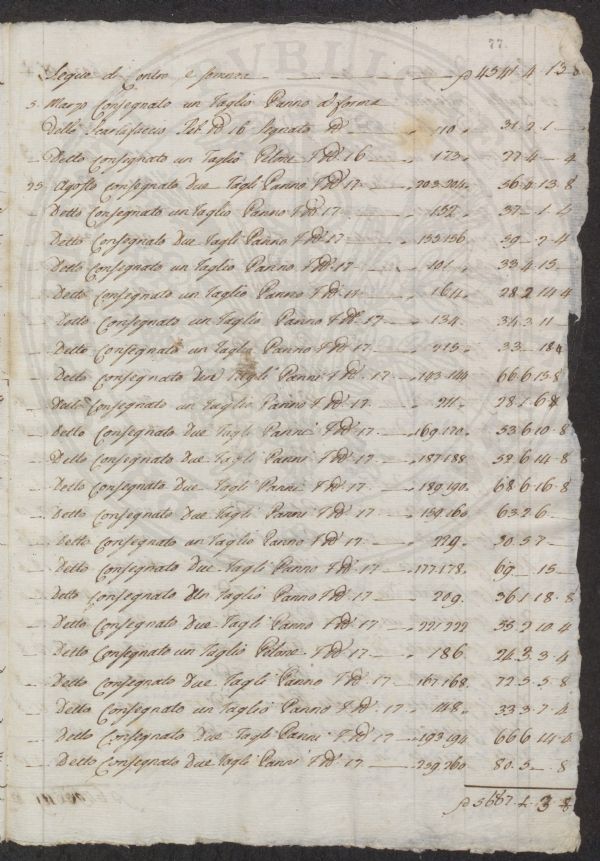 77.
Segue di Contro e somma — — — 4341.4.13.8
5. Marzo Consegnato un Taglio Panno di forma
Detto Segnato — 110. 31.2.1 —
— Detto Consegnato un Taglio Pelone 16 — 173 — 27.4 — 4
25. Agosto consegnato Due Tagli Panno 17 — 203.204. 56.4.13.8
— Detto Consegnato un Taglio Panno 17 — 132. 37.—.1.4
— Detto Consegnato Due Tagli Panno 17 — 155.156 59.—.2.4
— Detto Consegnato un Taglio Panno 17 — 101. 33.4.15 —
— Detto Consegnato un Taglio Panno 17 — 164. 28.2.14.4
— Detto Consegnato un Taglio Panno 17 — 134. 34.3.11 —
— Detto Consegnato un Taglio Panno 17 — 33.—.18.
— Detto Consegnato Due Tagli Panni 17 — 143.144 66.6.13.8
— Detto Consegnato un Taglio Panno 17 — 211. 28.1.6.8
— Detto Consegnato Due Tagli Panni 17 — 169.170. 53.6.10.8
— Detto Consegnato Due Tagli Panni 17 — 187.188 52.6.14.8
— Detto Consegnato Due Tagli Panni 17 — 189.190. 68.6.16.8
— Detto Consegnato Due Tagli Panni 17 — 159.160 63.2.6
— Detto Consegnato un Taglio Panno 17 — 229. 30.5.7 —
— Detto Consegnato Due Tagli Panno 17 — 177.178. 69.—.15 —
— Detto Consegnato Un Taglio Panno 17 — 209. 36.1.18.8
— Detto Consegnato Due Tagli Panno 17 — 221.222 55.2.10.4
— Detto Consegnato un Taglio Pelone 17 — 186 24.3.3.4
— Detto Consegnato Due Tagli Panno 17 — 167.168. 72.5.5.8
— Detto Consegnato un Taglio Panno 17 — 148. 33.3.7.4
— Detto Consegnato Due Tagli Panni 17 — 193.194 66.6.14.4
— Detto Consegnato Due Tagli Panni 17 — 259.260 80.5.—.8
5667.4.3.8